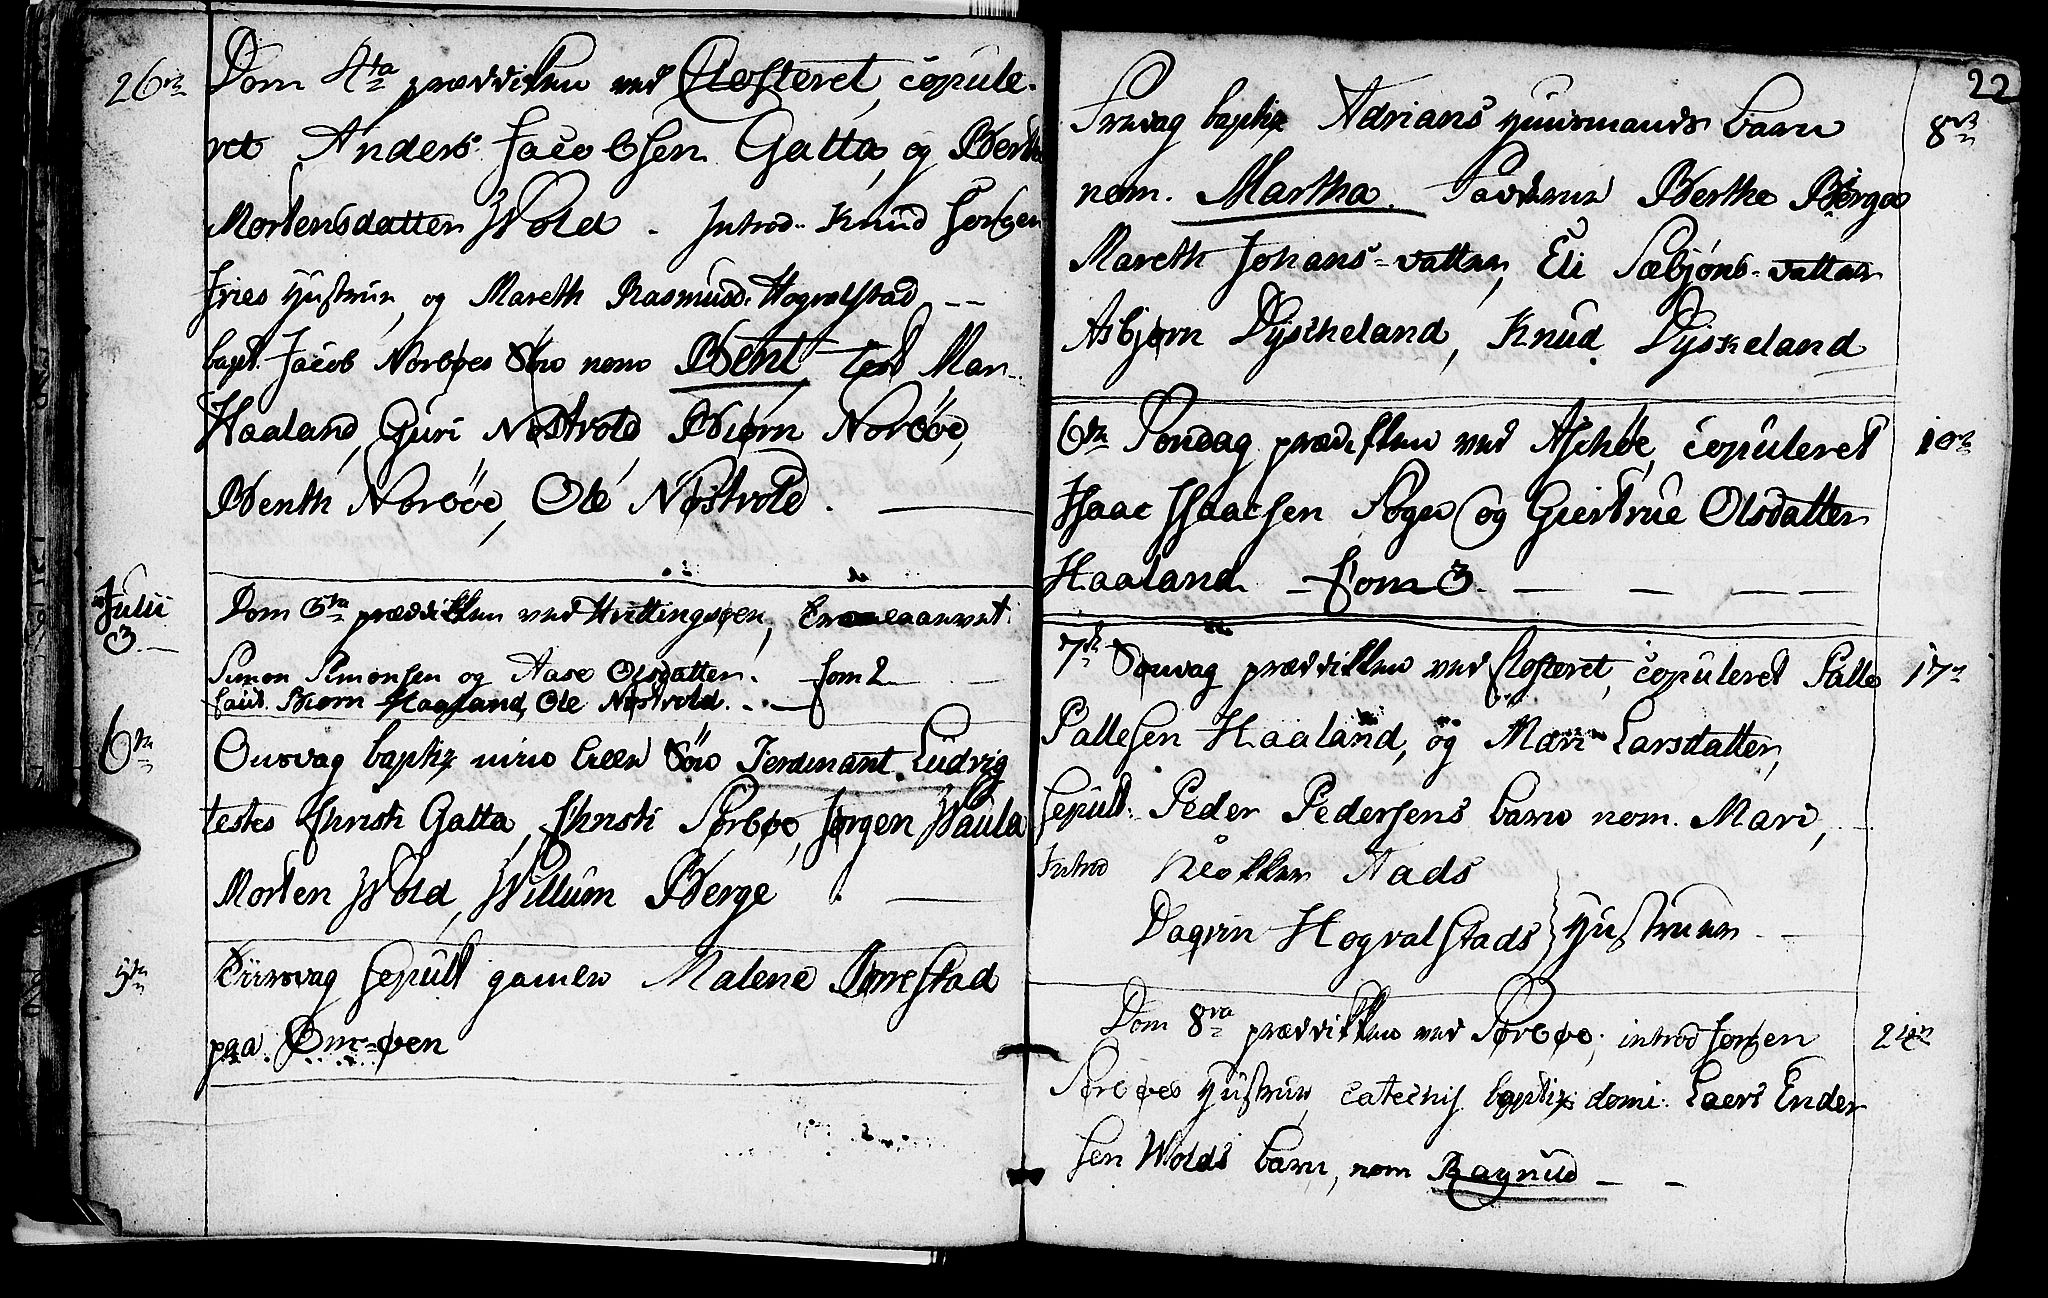 26de
Dom 4ta præddiken ved Closteret, copule-
ret Anders Jacobsen Gatta, og Berthe
Mortensdatter Wold. Introd. Knud Jørgen
Fries Hustrue, og Mareth Rasmusd. Hogvalstad --
bapt. Jacob Norbøes Søn nom Bent test Mar-
Haaland, Guri Nøstvold Biørn Norbøe,
Benth Norböe, Ole Nøstvold.
Julii
3.
Dom 5ta præddiken ved Huittingsøen,
Simon Simonsen og Aase Olsdatter. fom 2
caut. Biørn Haaland, Ole Nøstvold.
6te
Onsdag baptiz min lille Søn Ferdinant Ludvig
testes Christi Gatta, Christi Sørbøe, Jørgen Waula
Morten Wold, Willum Berge.
sepult gamle Malene
paa Om-øen
22
Fredag baptiz Adrians Huusmands barn
8de
nom. Martha. Fadderne Berthe Berge
Mareth Johans-datter, Eli Sæbjøns-datter
Asbjørn Dysckeland, Knud Dyskeland
6te Søndag prædiken ved Aschøe, copuleret
10de
Isaac Isaacsen Soge og Giertrue Olsdatter
Haaland - fom 3.
7de Søndag præddiken ved Closteret, copuleret Palle
17de
Pallesen Haaland, og Mari Larsdatter,
sepult. Peder Pedersens barn nom. Mari,
Introd Aads
Dagfin Hogvalstads Hustruer
Dom 8va præddiken ved Sørbøe, introd Jørgen
24de
Sørbøes Hustrue, catechis baptiz domi. Laers Ender
sen Wolds barn, nom Ragnild